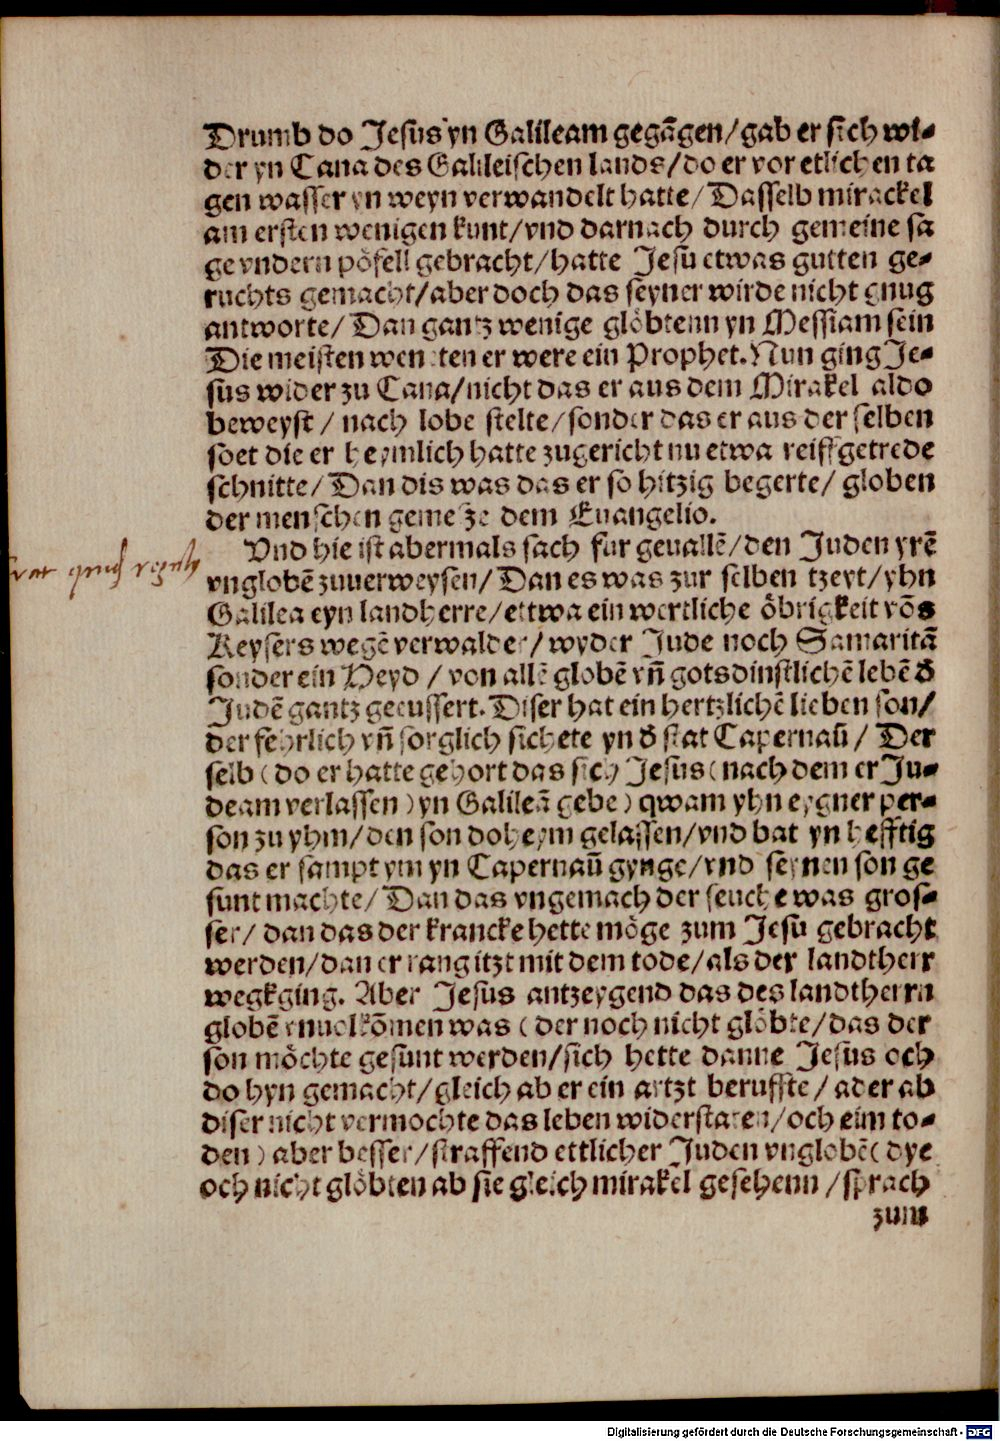 Drumb do Jesus yn Galileam gegãgen/gab er sich wi-
der yn Cana des Galileischen lands/do er vor etlichen ta
gen wasser yn weyn verwandelt hatte/ Dasselb mirackel
am ersten wenigen kunt/vnd darnach durch gemeine sa
ge vndern pöfell gebracht/hatte Jesu etwas gutten ge-
ruchts gemacht/aber doch das seyner wirde nicht gnug
antworte/ Dan gantz wenige glöbtenn yn Messiam sein
Die meisten wen ten er were ein Prophet. Nun ging Je-
sus wider zu Cana/nicht das er aus dem Mirakel aldo
beweyst / nach lobe stelte/sonder das er aus der selben
soet die er heymlich hatte zugericht nu etwa reiff getrede
schnitte/ Dan dis was das er so hitzig begerte/ globen
der menschen geme ze dem Euangelio.
Vnd hie ist abermals sach fur geuallẽ/den Juden yrẽ
vnglobẽ zuuerweysen/ Dan es was zur selben tzeyt/yhn
Galilea eyn landherre/ettwa ein wertliche öbrigkeit võs
Keysers wegẽ verwalder/ wyder Jude noch Samaritã
sonder ein Heyd / von allẽ globẽ vñ gotsdinstlichẽ lebẽ ð
Judẽ gantz geeussert. Diser hat ein hertzlichẽ lieben son/
der fehrlich vñ sorglich sichete yn ð stat Capernaũ / Der
selb ( do er hatte gehort das sich Jesus ( nach dem er Ju-
deam verlassen ) yn Galileã gebe ) qwam yhn eygner per-
son zu yhm/den son doheym gelassen/vnd bat yn hefftig
das er sampt ym yn Capernaũ gynge/vnd seynen son ge
sunt machte/ Dan das vngemach der seuche was gros-
ser/ dan das der krancke hette möge zum Jesu gebracht
werden/dan er rang itzt mit dem tode/als der landtherr
wegkging. Aber Jesus antzeygend das des landtherrn
globẽ vnuolkõmen was ( der noch nicht glöbte/das der
son möchte gesunt werden/sich hette danne Jesus och
do hyn gemacht/gleich ab er ein artzt beruffte / ader ab
diser nicht vermochte das leben widerstaten/och eim to-
den ) aber besser/straffend ettlicher Juden vnglobẽ( dye
och nicht glöbten ab sie gleich mirakel gesehenn /sprach
zum
Digitalisierung gefördert durch die Deutsche Forschungsgemeinschaft - DFG